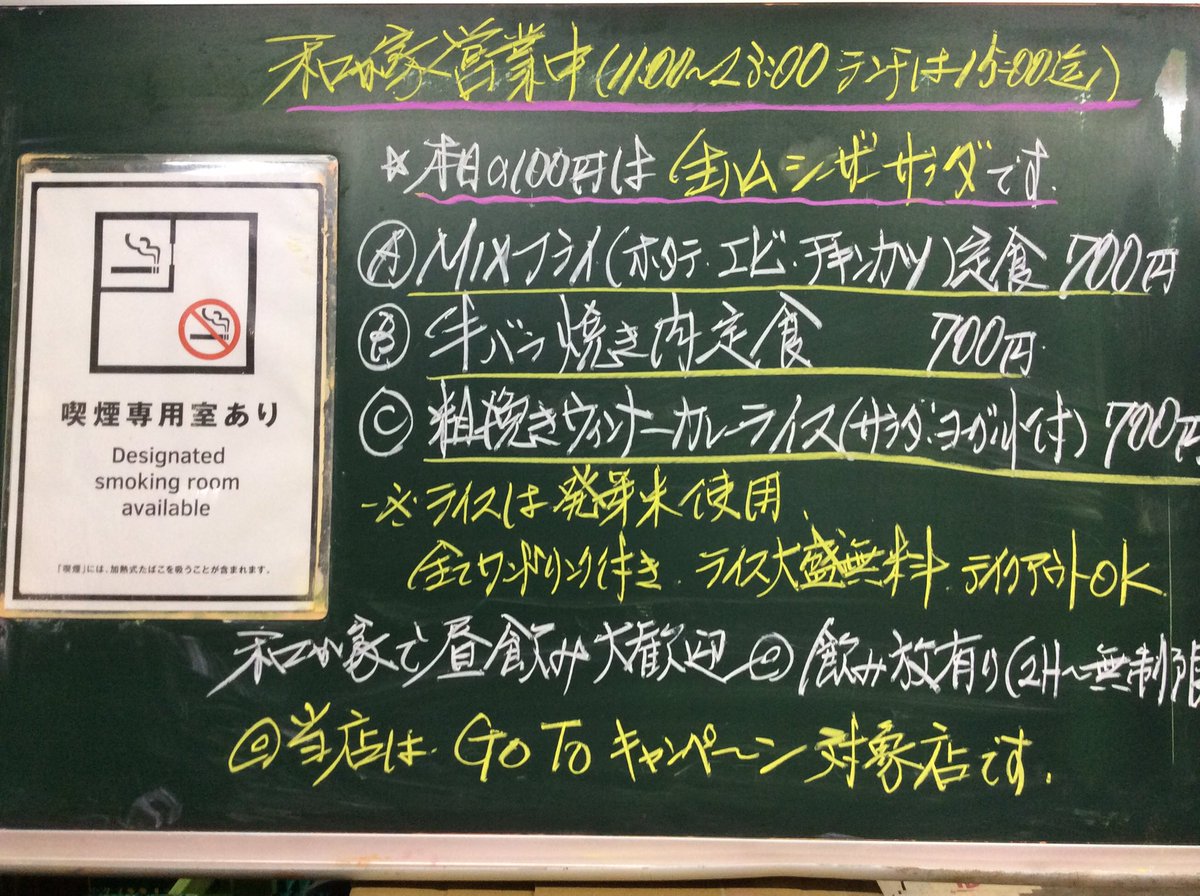 和か家営業中(11:00〜23:00 ランチは15:00迄)
☆本日の100円は生ハムシーザーサラダです.
Ⓐ MIXフライ(ホタテ・エビ・チキンカツ)定食 700円
Ⓑ 牛バラ焼き肉定食 700円
Ⓒ 粗挽きウィンナーカレーライス(サラダ・ヨーグルト付) 700円
※ライスは発芽米使用.
全てワンドリンク付き.ライス大盛無料 テイクアウトOK
和か家で昼飲み大歓迎◎飲み放有り(2H〜無制限
◎当店は.Go Toキャンペーン対象店です.
喫煙専用室あり
Designated
smoking room
available
「喫煙」には、加熱式たばこを吸うことが含まれます。